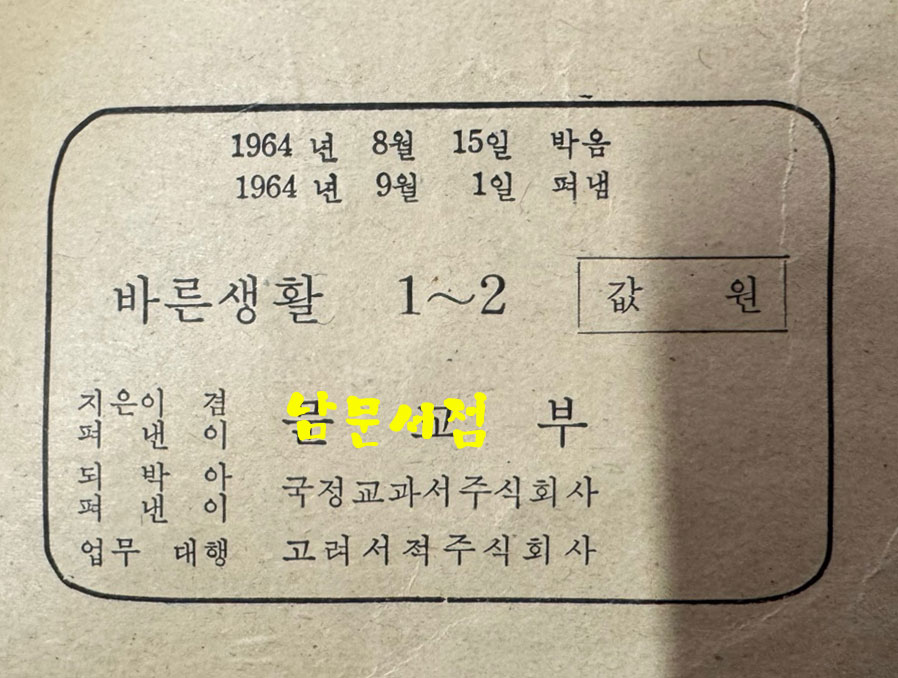 1964 년 8월 15일 박음
1964 년 9월 1일 펴냄
바른생활 1~2 값 원
지은이 겸
펴 낸 이
남문서점
문 교 부
되 박 아
펴 낸 이
국정교과서주식회사
업무 대행 고려서적주식회사